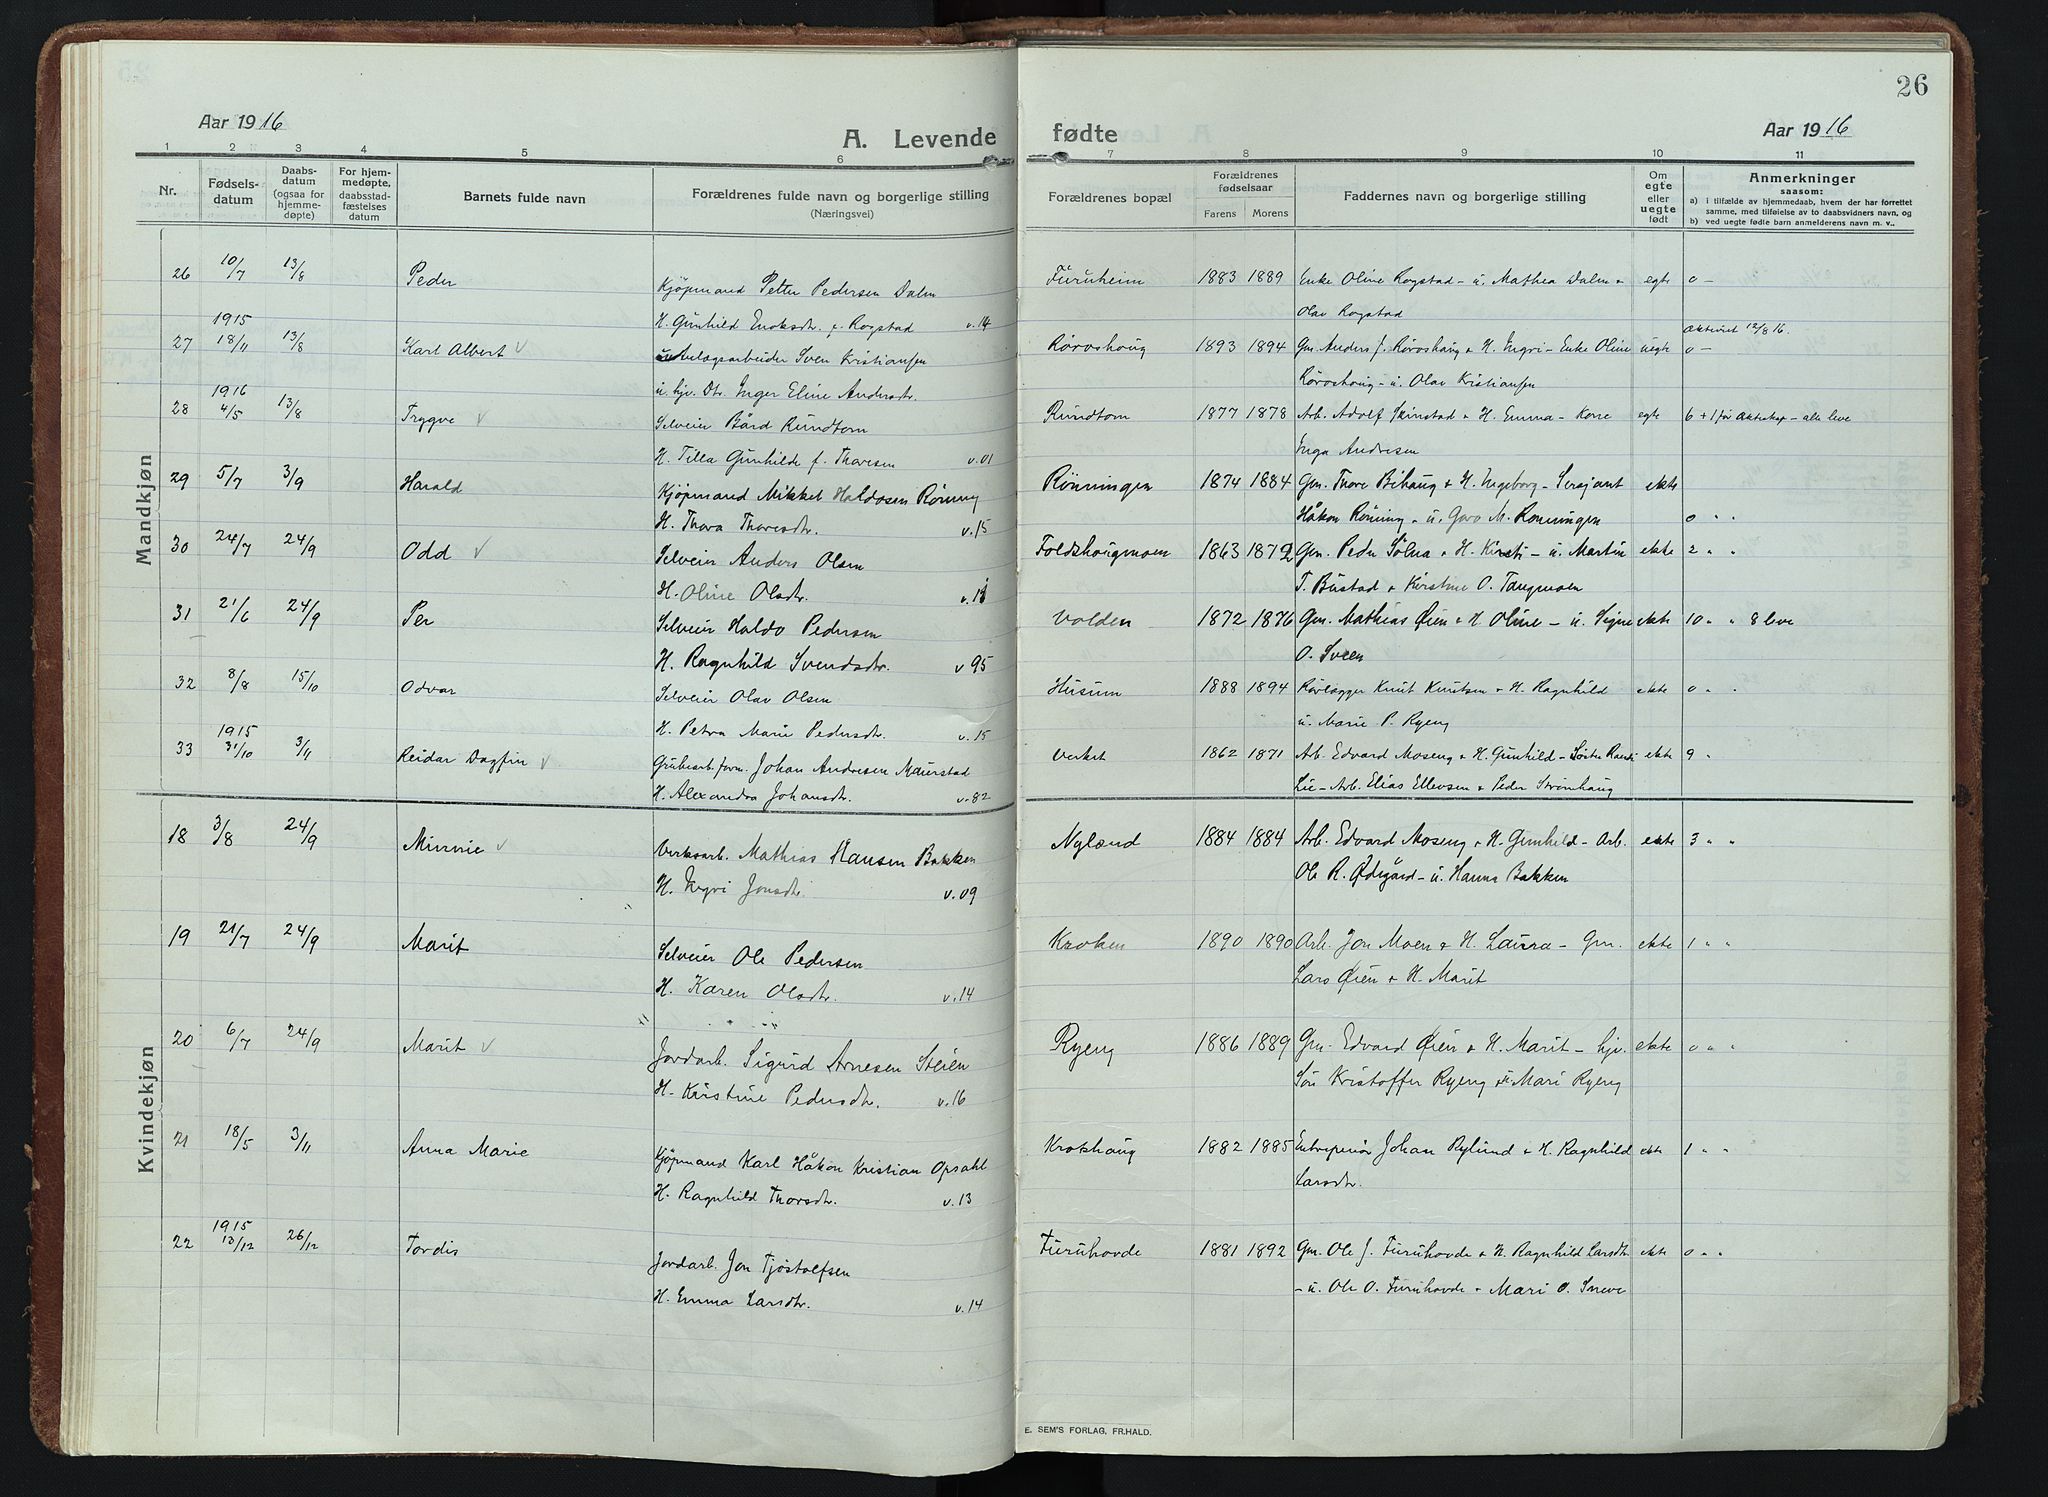 26
Aar 1916
A. Levende fødte
Aar 1916
1 2 3 4 5 6 7 8 9 10 11
Nr.
Fødsels-
datum
Daabs-
datum
(ogsaa for
hjemme-
døpte)
For hjem-
medøpte,
daabsstad-
fæstelses
datum
Barnets fulde navn
Forældrenes fulde navn og borgerlige stilling
(Næringsvei)
Forældrenes bopæl
Forældrenes
fødselsaar
Farens Morens
Faddernes navn og borgerlige stilling
Om
egte
eller
uegte
født
Anmerkninger
saasom:
a) i tilfælde av hjemmedaab, hvem der har forrettet
samme, med tilføielse av to daabsvidners navn, og
b) ved uegte fødte barn anmelderens navn m. v..
Mandkjøn
26 10/7 13/8 Peder Kjöpmand Petter Pedersen Dalm Furuheim 1883 1889 Enke Oline Rogstad - u. Mathea Dalm + egte 0 -
H. Gunhild Enoksdtr. f. Rogstad v.14 Olav Rogstad
27 1915 18/11 13/8 Karl Albert Anlegsarbeider Sven Kristiansen Röroshoug 1893 1894 Gm. Anders J. Röroshaug + H. Ingri - Enke Oline uegte 0 -
12/8 16.
u. hjv. Dtr. Inger Eline Andersdtr. Röroshoug - u. Olav Kristiansen
28 1916 4/5 13/8 Trygve Selveier Bård Rundtom Rundtom 1877 1878 Arb. Adolf Skinstad + H. Emma - Kone egte 6 + 1 før - alle leve
H. Tilla Gunhilde f. Thoresen v.01 Inga Andresen
29 5/7 3/9 Harald Kjöpmand Mikkel Haldosen Röning Rönningen 1874 1884 Gm. Thore Bihaug + H. Ingeborg - Sersjant ekte
H. Thora Thoresdtr. v.15 Håkon Röning - u. Guro M. Ronningen 0 " "
30 24/7 24/9 Odd Selveier Anders Olsen Foldshougmoen 1863 1872 Gm. Peder Sölna + H. Kirsti - u. Martin ekte 2 " "
H. Oline Olsdtr. T. Bustad + Kirstine O. Tangmoen
31 21/6 24/9 Per Selveier Haldo Pedersen Volden 1872 1876 Gm. Mathias Øien + H Oline - u. Signe ekte 10 " " 8 leve
H. Ragnhild Svendsdtr. v 95 O. Sveen
32 8/8 15/10 Odvar Selveier Olav Olsen Husum 1888 1894 Rørlægger Knut Knutsen + H. Ragnhild ekte 0 " "
H. Petra Marie Pedersdtr. v. 15 u. Marie P. Ryeng
33 1915 31/10 3/11 Reidar Dagfin Grubearb.form. Johan Andresen Maurstad Verket 1862 1871 Arb. Edvard Moseng + H. Gunhild - Søster Randi ekte 9 "
H. Alexandra Johansdtr. v. 82 Lie - Arb. Elias Ellevsen + Peder Strömhaug
Kvindekjøn
18 3/8 24/9 Minnie Verksarb. Mathias Hansen Bakken Nyland 1884 1884 Arb. Edvard Moseng + H. Gunhild - Arb. ekte 3 " "
H. Ingri Jonsdtr. v. 09 Ole R. Ødegård - u. Hanna Bakken
19 21/7 24/9 Marit Selveier Ole Pedersen Kroken 1890 1890 Arb. Jon Moen + H. Laura - Gm. ekte 1 " "
H. Karen Olsdtr. v. 14 Lars Øien + H. Marit
20 6/7 24/9 Marit Jordarb. Sigurd Arnesen Steien Ryeng 1886 1889 Gm. Edvard Øien + H. Marit - hjv. ekte 0 " "
H. Kristine Pedersdtr. v. 16 Sön Kristoffer Ryeng + u. Mari Ryeng
21 18/5 3/11 Anna Marie Kjöpmand Karl Håkon Kristian Opsahl Krokshaug 1882 1885 Entreprenör Johan Rylund + H. Ragnhild ekte 1 " "
H. Ragnhild Thorsdtr. v. 13 Larsdtr.
22 1915 13/12 26/12 Tordis Jordarb. Jon Tjöstolfsen Furuhovde 1881 1892 Gm. Ole J. Furuhovde + H. Ragnhild Larsdtr ekte 0 " "
H. Emma Larsdtr. v. 14 - u. Ole O. Furuhovde + Mari O. Sneve
E. SEM'S FORLAG, FR.HALD.